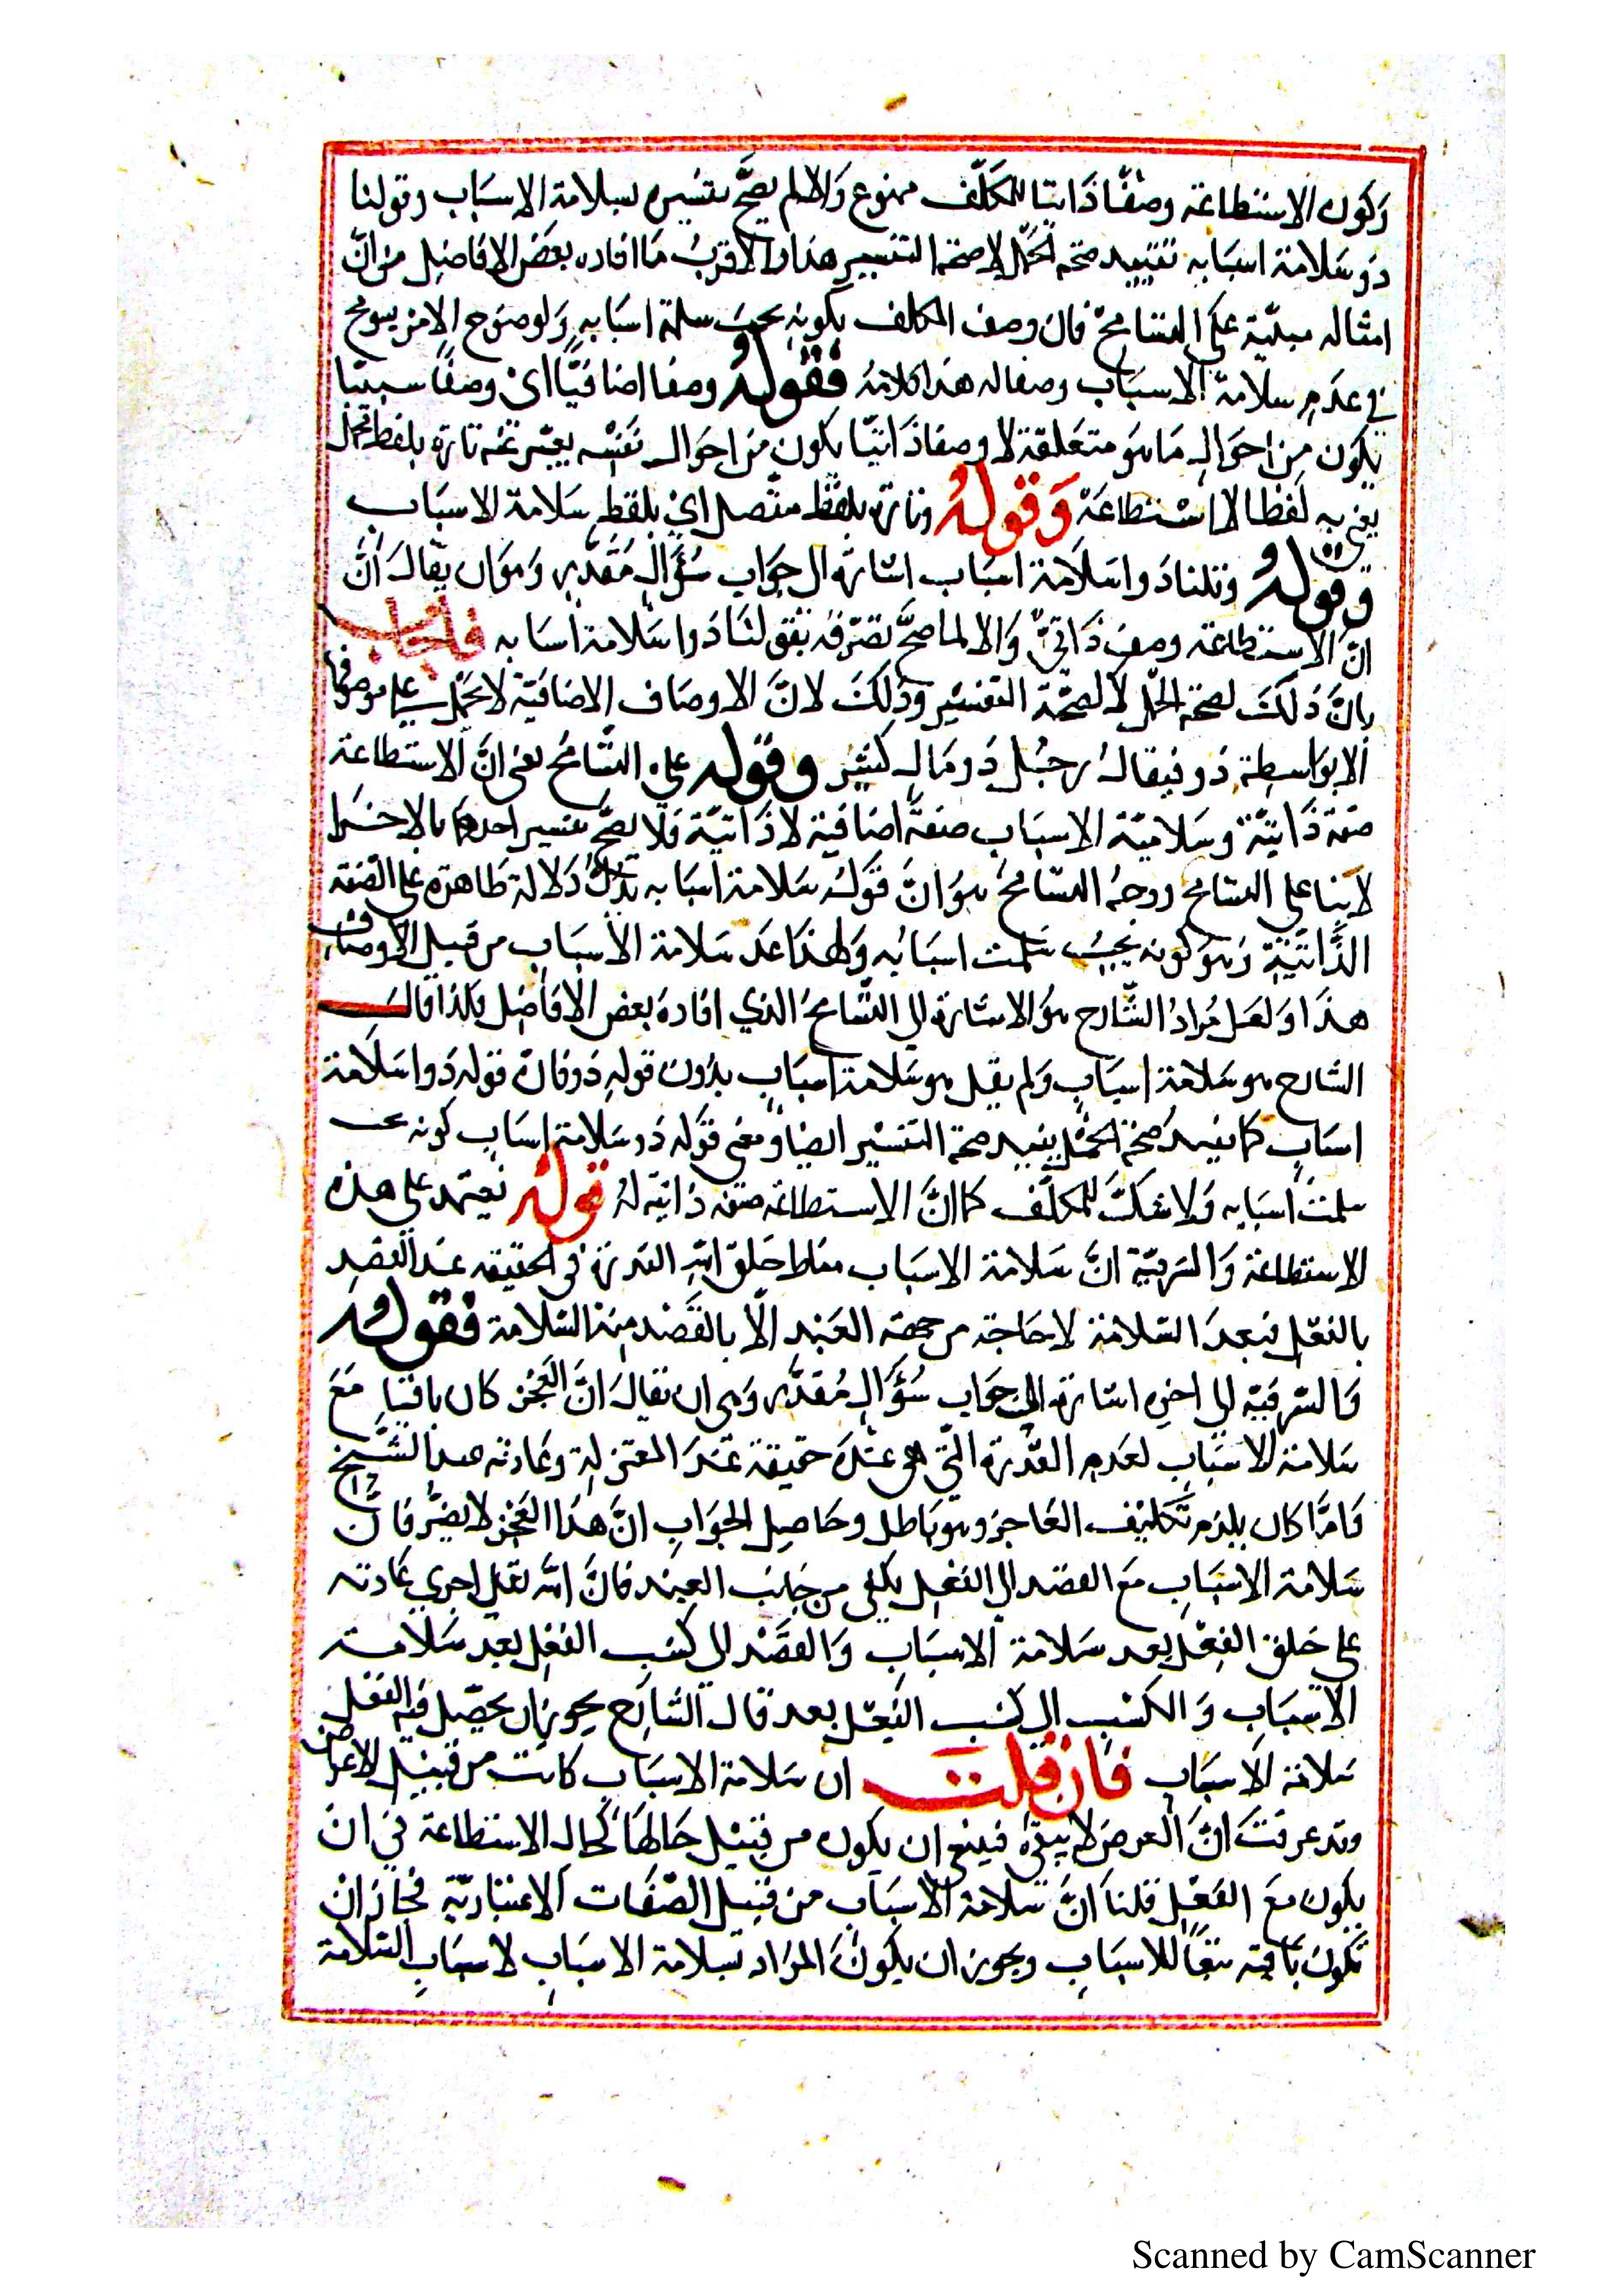 وَكون الاستطاعة وصفًا ذَاتيا للمكَلّف ممنوع وَالا لم يصحَّ تفسيره بسلامة الاسبَاب وقولنا
ذو سَلامة اسبَابه تفييد صحة الحمل لا صحة التفسير هذا والاقربُ مَا افاده بعَض الافاضِل من انَّ
امثاله مبنيّة على التسامحّ فان وصف المكلف بكونه بحيث سلمة اسبَابهِ وَلوضوح الامر يسومح
في عدَم سلامة الاسبَاب وصفا له هذا كلامهُ فقولهُ وصفا اضَافيًّا ايْ وصفًا سببيّا
يكون من احوَال مَا هُوَ متعَلقة لا وصفا ذَاتيًّا يكون من احوَال نفسْه يعبّر عنه تارة بلفظ مجمل
يعني به لفظ الاسْتطاعَة وَقولهُ وتارة بلفظ مفصل اي بلفظ سَلامة الاسبَاب
وقولهُ وقلنا ذَوا سَلاَمة اسبَاب اشارة الى جوَاب سُؤَالٍ مُقدّر وَهوَ ان يقالَ انَّ
انَّ الاستطاعة وصف ذَاتيٌّ وَالا لما صحَّ تصرّفه بقولنَا ذَوا سَلامة اسَابه فاجَاب
بانَّ ذَلكَ لصحّة الحمل لا لصحَّة التفسْير وَذلكَ لانَّ الاوصَاف الاضافيّة لا تحمَل على موصوفها
الا بوَاسطة ذو فيقالُ رجُل ذَو مَال كثير وقوله على التسَامحُ يعنى انَّ الاستطاعة
صفة ذَاتيّة وسَلاميّة الاسبَاب صفةً اضَافية لا ذَاتيّة فَلا يصحّ تفسير احدهمَا بالاخر
لا بنا على التسَامح ووجهُ التسَامحُ هوُ انَّ قوَلهُ سَلامة اسبَابه يَدُلّ دلالة ظَاهرة على الصفة
الذَّاتيّة وَهوَ كونه بحيثُ سَلمت اسبَابُه وَلهذا عدَ سَلامة الاسبَاب من قبيل الاوصَاف
هذَا وَلعَل مُرادُ الشّارح هوُ الاشارة الى التّسَامحُ الذي افادهُ بعض الافاضِل ولذا قالَ
الشارح هو سَلامة اسبَاب وَلم يقل هو سَلامة اسبَاب بدُون قولهِ ذو فانّ قوله ذَوا سَلامة
اسبَاب كما يفيد صحّة الحمْل يفيد صحّة التفسْير ايضا ومعنى قوَله ذَو سَلامة اسبَاب كونه بحيث
سلمتَ اسبَابه وَلا شكَّ للمكلّف كما انَّ الاستطاعَة صفة ذاتية لهُ قولهُ تعتمد على هذه
الاستطاعة وَالسّر فيّه انَّ سَلامة الاسبَاب مناط خلق الله القدرة في الحقيقه عند القصد
بالفعل فبعدَ السّلامة لا حاجة من جهة العَبْد الّا بالقَصْد منه السّلامة فقولهُ
وَالسّر فيّه الى اخره اشارة الى جوَاب سُؤَالٍ مُقدّر وَهى ان يقالَ انَّ العَجْز كان باقيا مَعَ
سَلامة الاسبَاب لعَدم القدْرة الّتي هى علة حقيقة عندَ المعتزلة وعَادته عند الشيّخ
فَامّا كان يلزم تكَليْف العَاجز وهو بَاطل وحَاصِل الجوَاب انَّ هَذا العَجْز لا يضرُّ فانَّ
سَلامة الاسبَاب مَع القصد الى الفعْل يكفى من جَانب العبْد فانَّ الله تعَالى اجري عَادته
على خلق الفعْل بعد سَلامة الاسبَاب وَالقصَد الى كسْب الفعْل بعد سَلامة
الاسبَاب وَالكسْب الى كسْب الفعْل بعد قال الشّارح يجوز ان يحصّل فيه الفعل
سَلامة الاسبَاب فان قلتَ ان سَلامة الاسبَاب كانت من قبيل الاعراض
وقد عرفتَ انَّ العرض لا يبقى فينبغي ان يكون من قبيْل حَالهَا كحال الاستطاعة في ان
يكون معَ الفعْل قلناَ انَّ سَلامة الاسبَاب من قبيل الصّفَات الاعتباريّة فجَاز ان
تكون باقية تبعاً للاسبَاب ويجوز ان يكونَ المرَاد بسلامة الاسبَاب لاسبَاب السّلامة
Scanned by CamScanner